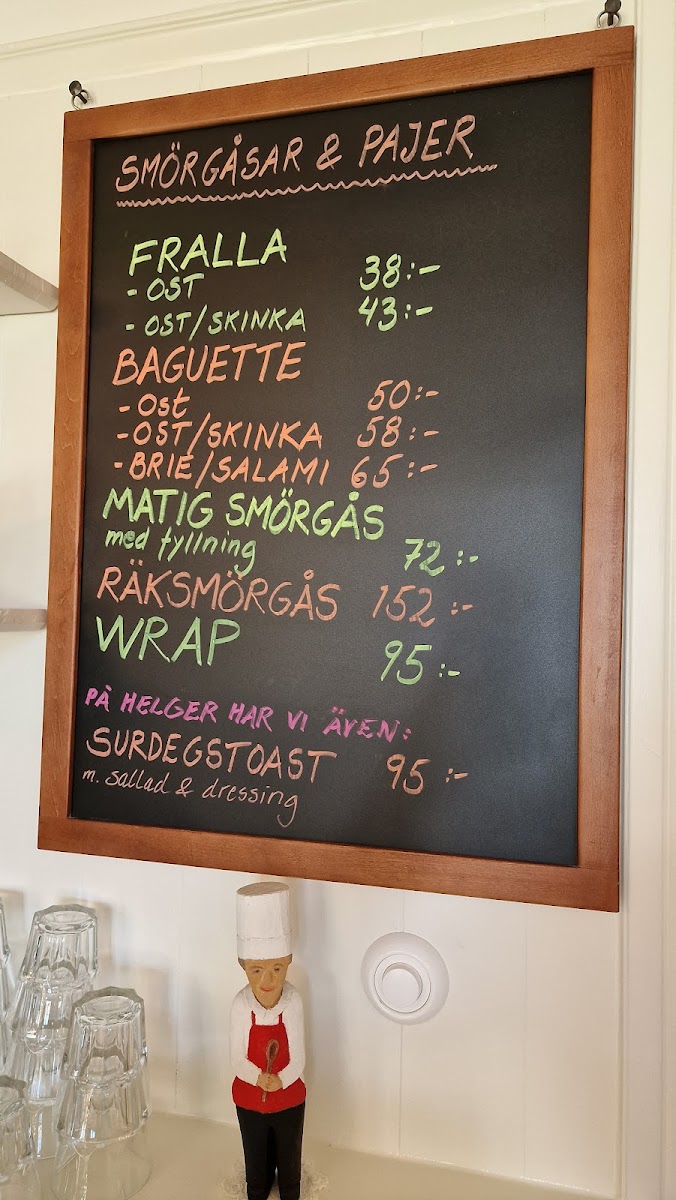 SMÖRGÅSAR & PAJER
FRALLA
- OST 38:-
- OST/SKINKA 43:-
BAGUETTE
- Ost 50:-
- OST/SKINKA 58:-
- BRIE/SALAMI 65:-
MATIG SMÖRGÅS
med fyllning 72:-
RÄKSMÖRGÅS 152:-
WRAP 95:-
PÅ HELGER HAR VI ÄVEN:
SURDEGSTOAST 95:-
m. sallad & dressing